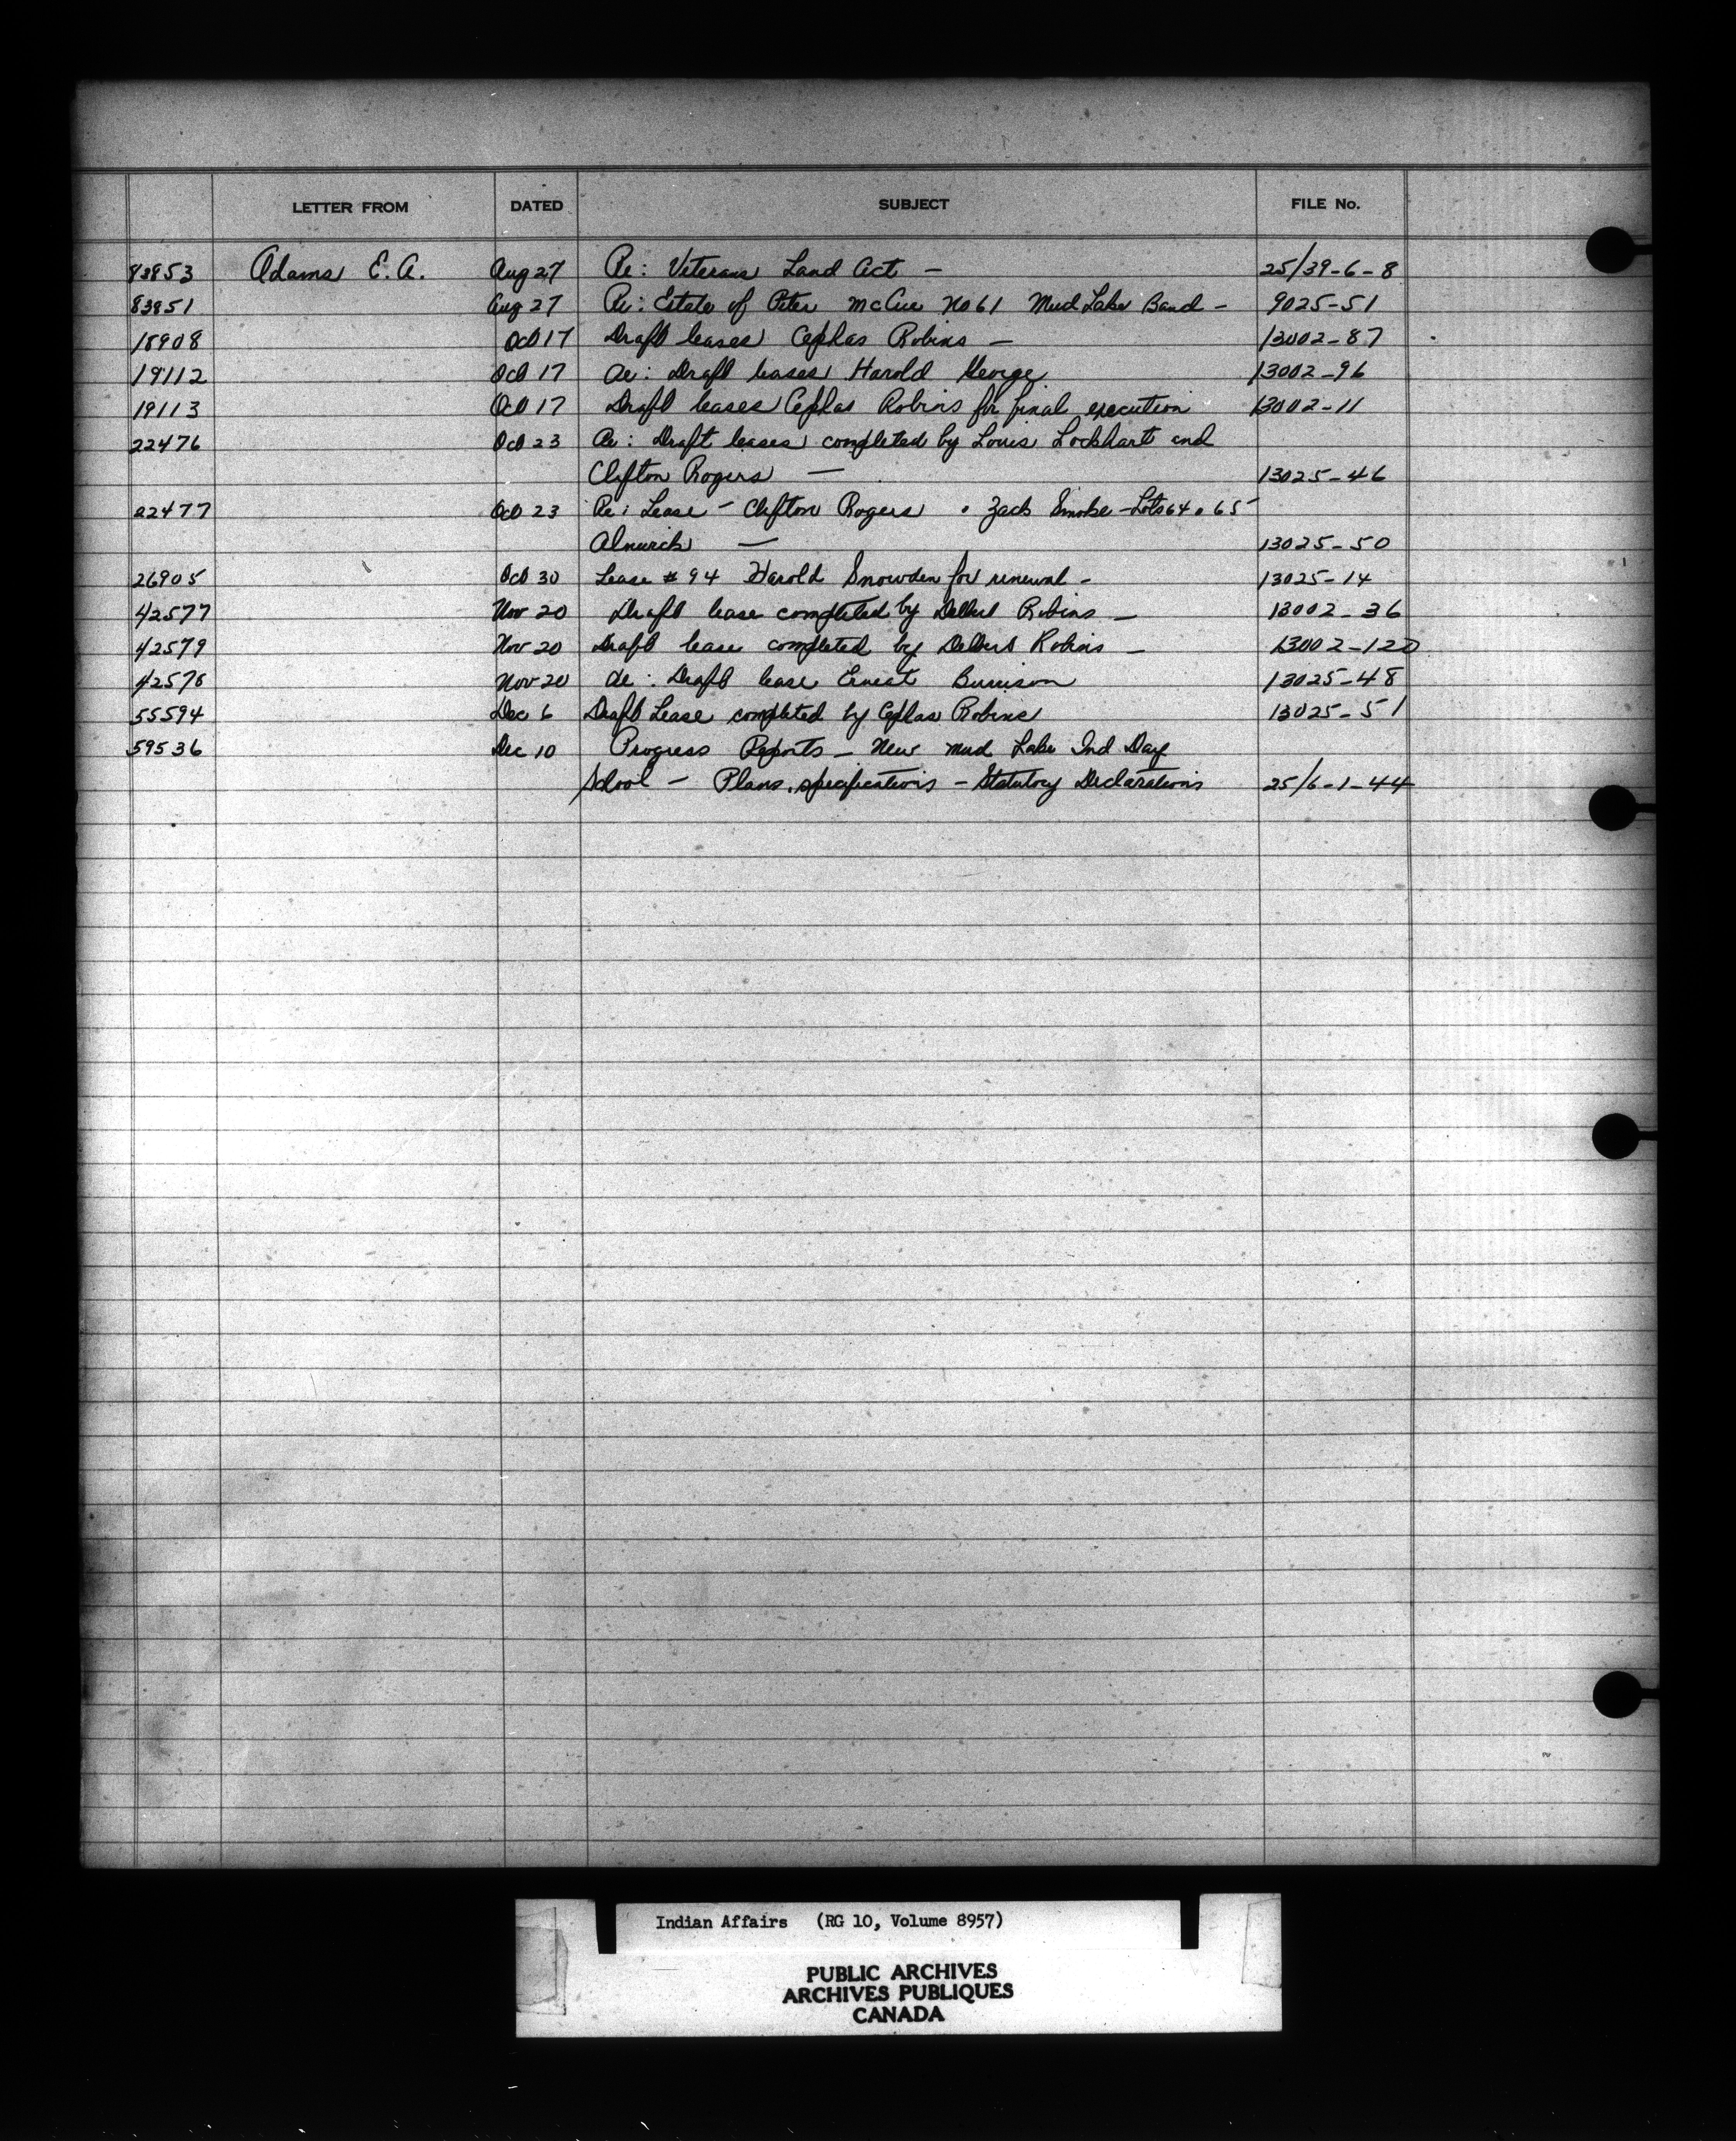 LETTER FROM DATED SUBJECT FILE No.
83853 Adams E. A. Aug 27 Re: Veterans Land Act — 25/39-6-8
83851 Aug 27 Re: Estate of Peter McCue No 61 Mud Lake Band — 9025-51
18908 Oct 17 Draft leases Cephas Robins — 13002-87
19112 Oct 17 Re: Draft leases Harold George 13002-96
19113 Oct 17 Draft leases Cephas Robins for final execution 13002-11
22476 Oct 23 Re: Draft leases completed by Louis Lockhart and
Clifton Rogers — 13025-46
22477 Oct 23 Re: Lease — Clifton Rogers . Zack Smoke — Lots 64 . 65
Alnwick — 13025-50
26905 Oct 30 Lease # 94 Harold Snowden for renewal — 13025-14
42577 Nov 20 Draft lease completed by Delbert Robins — 13002-36
42579 Nov 20 Draft lease completed by Delbert Robins — 13002-120
42578 Nov 20 Re: Draft lease Ernest 13025-48
55594 Dec 6 Draft Lease completed by Cephas Robins 13025-51
59536 Dec 10 Progress Reports — New Mud Lake Ind Day
School — Plans, specifications — Statutory Declarations 25/6-1-44
Indian Affairs (RG 10, Volume 8957)
PUBLIC ARCHIVES
ARCHIVES PUBLIQUES
CANADA